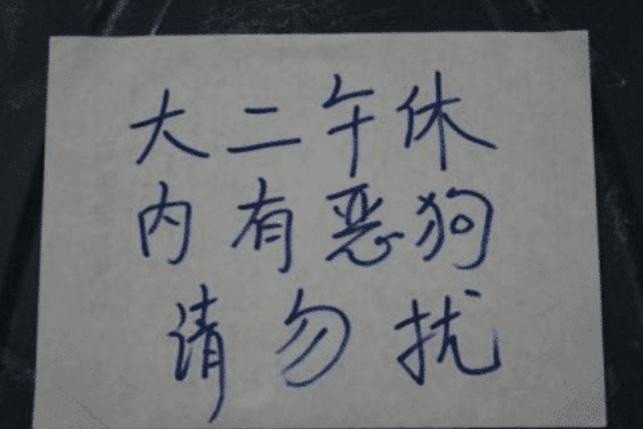 大二午休
内有恶狗
请勿扰